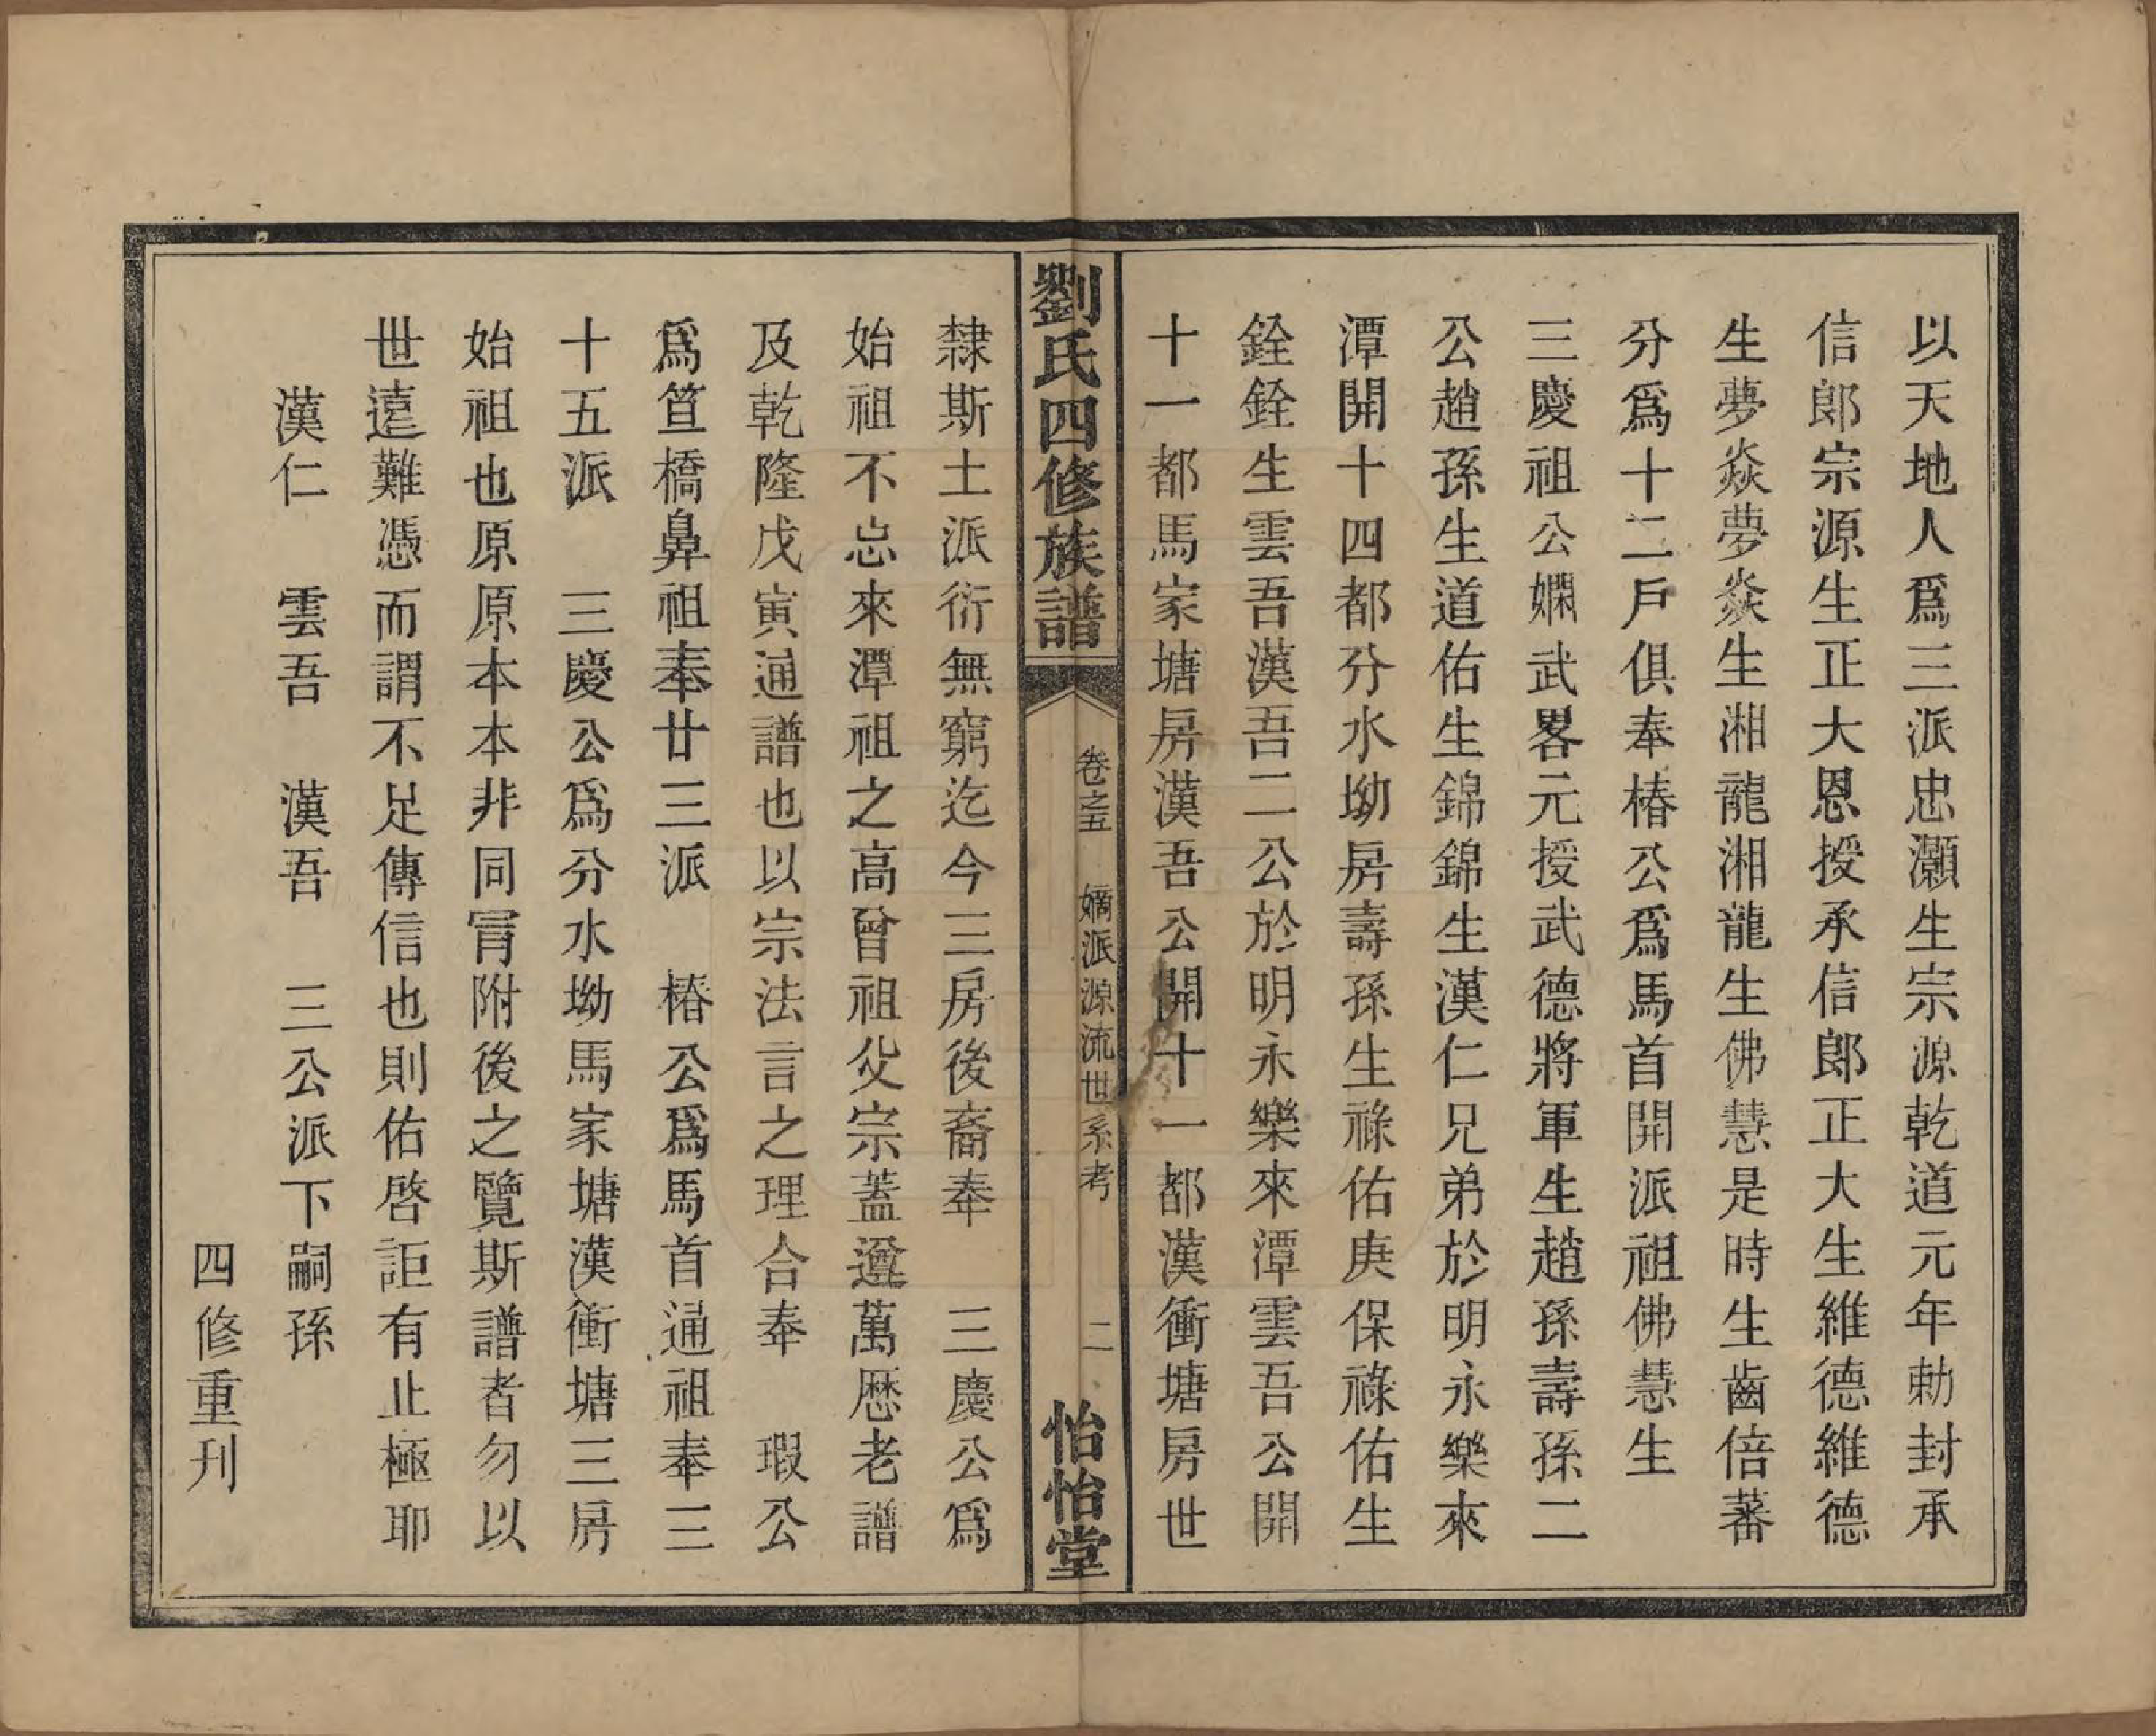 以天地人爲三派忠灝生宗源乾道元年勅封承
信郎宗源生正大恩授承信郎正大生維德維德
生夢焱夢焱生湘龍湘龍生佛慧是時生齒倍蕃
分爲十二戶俱奉椿公爲馬首開派祖佛慧生
三慶祖公嫻武畧元授武德將軍生趙孫壽孫二
公趙孫生道佑生錦錦生漢仁兄弟於明永樂來
潭開十四都分水坳房壽孫生祿佑庚保祿佑生
銓銓生雲吾漢吾二公於明永樂來潭雲吾公開
十一都馬家塘房漢吾公開十一都漢衝塘房世
劉氏四修族譜
卷之五 嫡派源流世系考 二
怡怡堂
隸斯土派衍無窮迄今三房後裔奉 三慶公爲
始祖不忘來潭祖之高曾祖父宗蓋遵萬歷老譜
及乾隆戊寅通譜也以宗法言之理合奉 瑕公
爲笪橋鼻祖奉廿三派 椿公爲馬首通祖奉三
十五派 三慶公爲分水坳馬家塘漢衝塘三房
始祖也原原本本非同冐附後之覽斯譜者勿以
世遠難憑而謂不足傳信也則佑啓詎有止極耶
漢仁 雲吾 漢吾 三公派下嗣孫
四修重刊